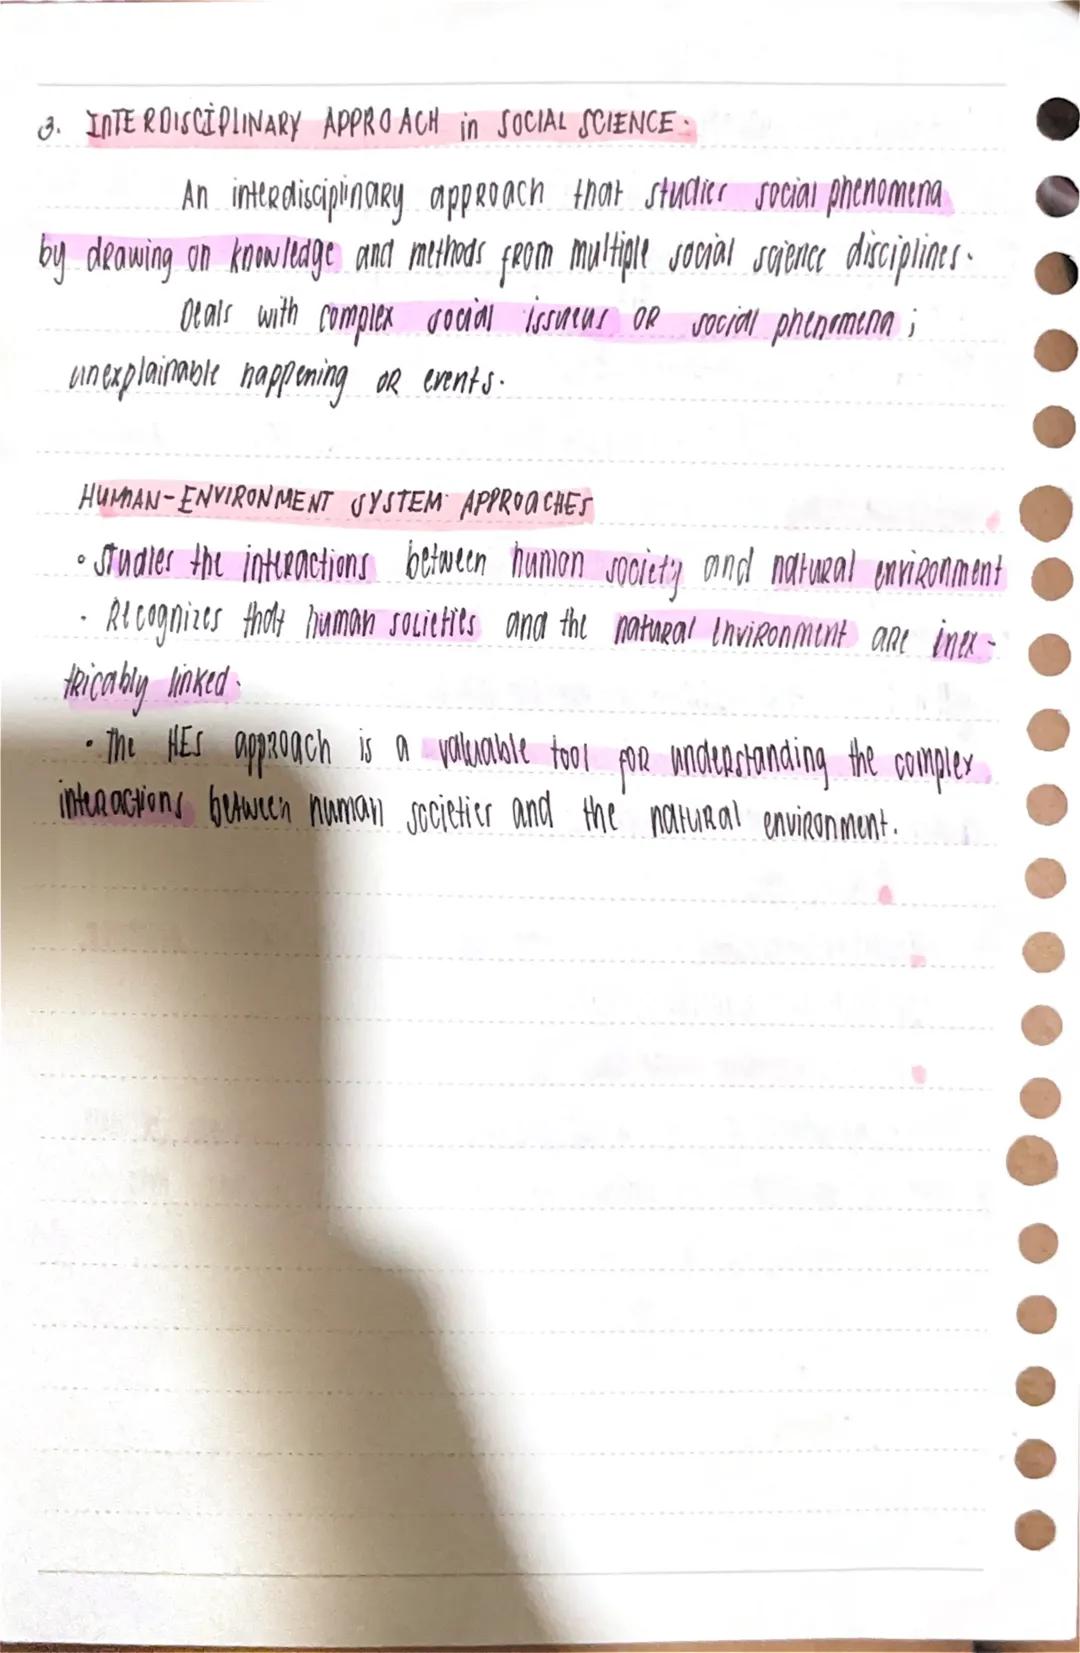 3. INTERDISCIPLINARY APPROACH in SOCIAL SCIENCE.
An interdisciplinary approach that studies social phenomena
by drawing on knowledge and methods from multiple social science disciplines.
Deals with complex social issueus OR social phenomena ;
unexplainable happening OR events.
HUMAN-ENVIRONMENT SYSTEM APPROACHES
• Studies the interactions between human society and natural environment
• Recognizes that human societies and the natural environment are inex-
tricably linked.
• The HES approach is a valuable tool for understanding the complex
interactions between human societies and the natural environment.